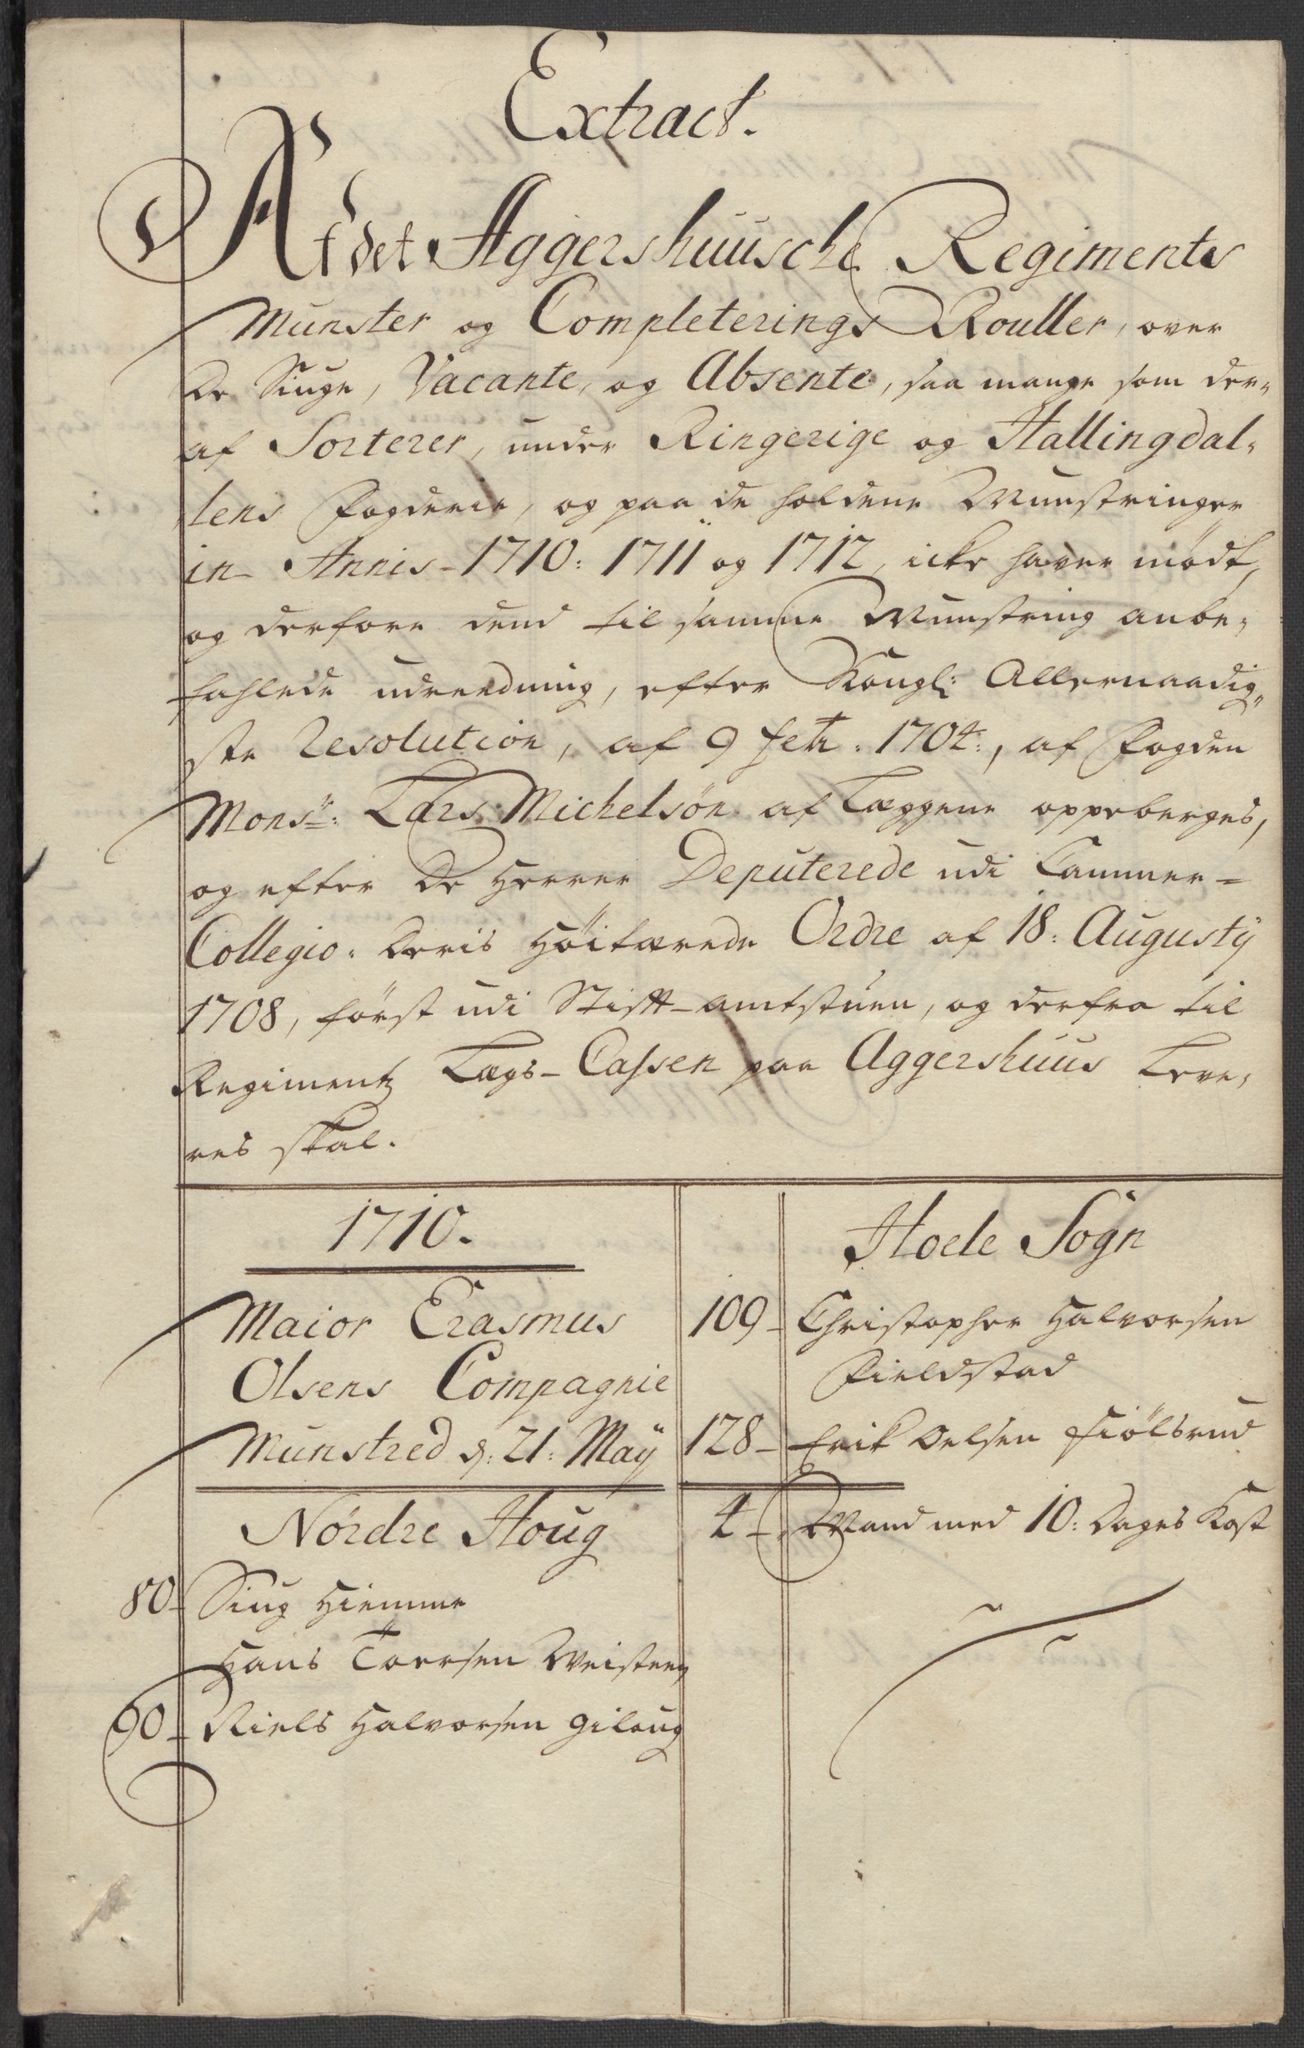 Extract.
Af det Aggershuusche Regiments
Munster og Completerings Rouller, over
de Siuge, Vacante, og Absente, saa mange som der-
af Sorterer, under Ringerige og Hallingdal-
lens Fogderie, og paa de holdene Munstringer
in Annis 1710: 1711 og 1712, icke haver mødt,
og derfore dend til samme Munstring anbe-
fahlede udreedning, efter Kongl: Allernaadig-
ste Resolution, af 9 feb: 1704:, af Fogden
Monsr: Lars Michelsøn af Læggene oppeberges,
og efter de Herrer Deputerede udi Cammer-
Collegio: deris Høitærede Ordre af 18: Augustÿ
1708, først udi Stift-amtstuen, og derfra til
Regimentz Lægs-Cassen paa Aggershuus Leve-
res skal.
1710.
Maior Erasmus
Olsens Compagnie
Munstred d: 21: Maÿ
Nordre Houg
80- Siug Hiemme
Hans Toersen Weisteen
90- Niels Halvorsen Gilaug
Hoele Sogn
109- Christopher Halvorsen
Fieldstad
128- Erik Oelsen Fiølsrud
4- Mand med 10: dages Kost